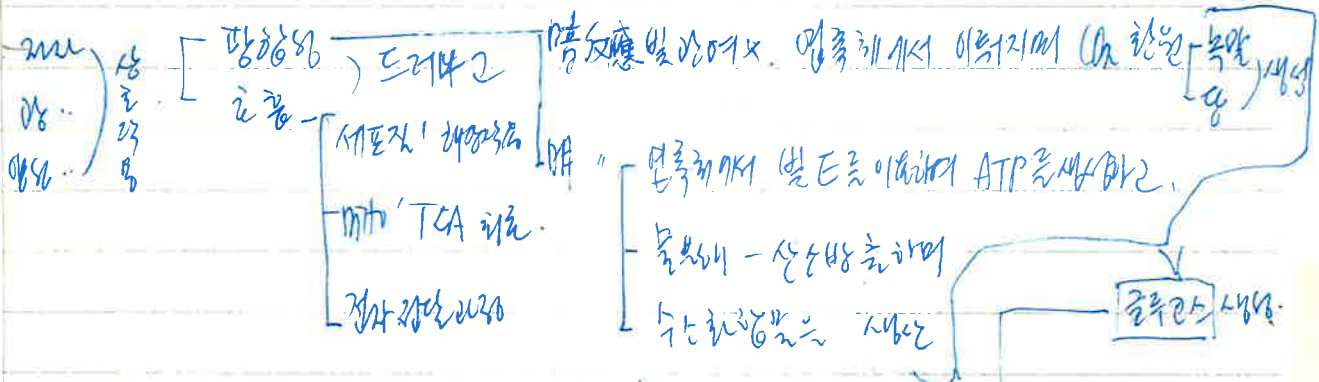 광합성 ) 드러내고
호흡
세포질' 해당작용
mito' TCA 회로.
전자전달과정
暗反應 빛 관여x. 엽록체에서 이뤄지며 CO₂ 환원 녹말 당 ) 생성
明 〃 엽록체에서 빛E를 이용하여 ATP를 생성하고,
물분해 - 산소방출하며
수산화합물을 생산
글루코스 생성.